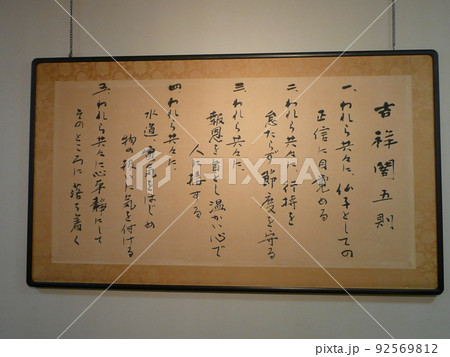 吉祥閣五則
一、われら共々に、仏子としての
正信に目覚める
二、われら共々に、行持を
怠たらず節度を守る
三、われら共々に、
報恩を旨とし温かい心で
人に接する
四、われら共々に、
水道、電気をはじめ
物の扱いに気を付ける
五、われら共々に心平静にして
そのところに落ち着く
PIXTA
pixta.jp - 92569812